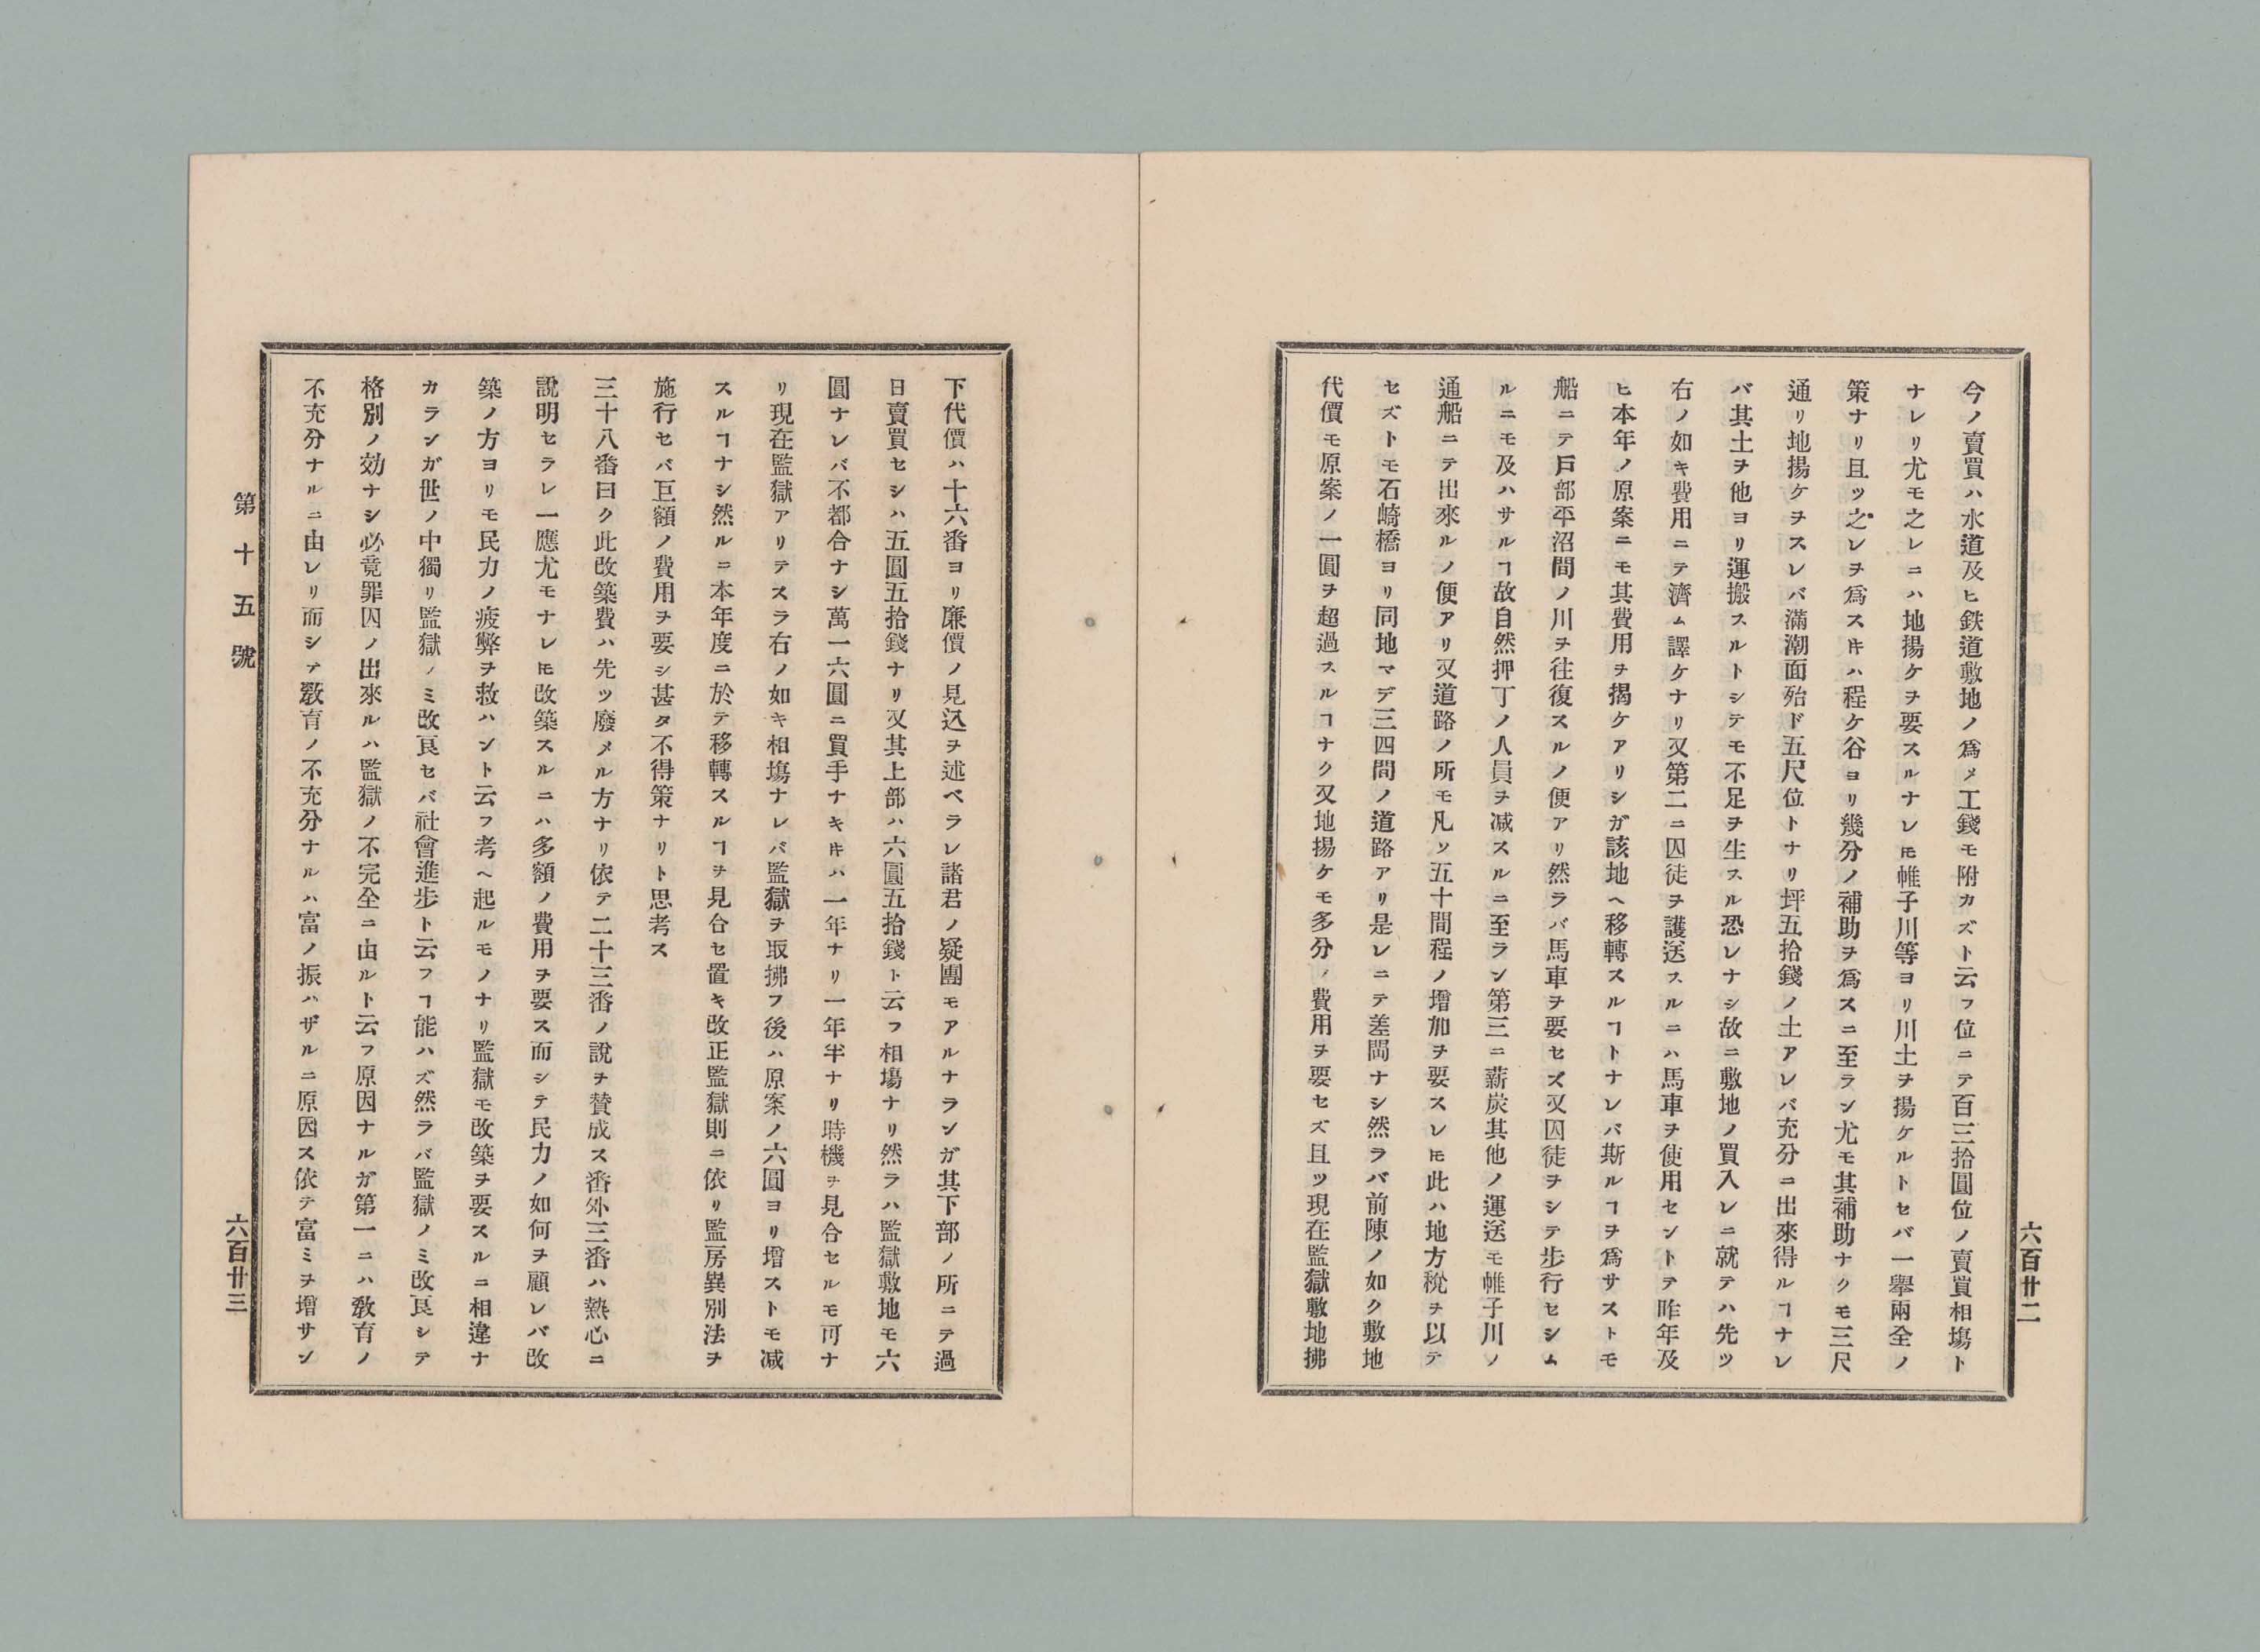 六百廿二
今ノ賣買ハ水道及ヒ鉄道敷地ノ爲メ工錢モ附カズト云フ位ニテ百三拾圓位ノ賣買相塲ト
ナレリ尤モ之レニハ地揚ケヲ要スルナレ𪜈帷子川等ヨリ川土ヲ揚ケルトセバ一擧兩全ノ
策ナリ且ツ之レヲ爲ス𪜀ハ程ケ谷ヨリ幾分ノ補助ヲ爲スニ至ラン尤モ其補助ナクモ三尺
通リ地揚ケヲスレバ滿潮面殆ド五尺位トナリ坪五拾錢ノ土アレバ充分ニ出來得ルヿナレ
バ其土ヲ他ヨリ運搬スルトシテモ不足ヲ生スル恐レナシ故ニ敷地ノ買入レニ就テハ先ツ
右ノ如キ費用ニテ濟ム譯ケナリ又第二ニ囚徒ヲ護送スルニハ馬車ヲ使用セントテ昨年及
ヒ本年ノ原案ニモ其費用ヲ揭ケアリシガ該地ヘ移轉スルヿトナレバ斯ルヿヲ爲サストモ
船ニテ戸部平沼間ノ川ヲ往復スルノ便アリ然ラバ馬車ヲ要セズ又囚徒ヲシテ步行セシム
ルニモ及ハサルヿ故自然押丁ノ人員ヲ减スルニ至ラン第三ニ薪炭其他ノ運送モ帷子川ノ
通船ニテ出來ルノ便アリ又道路ノ所モ凡ソ五十間程ノ增加ヲ要スレ𪜈此ハ地方稅ヲ以テ
セズトモ石崎橋ヨリ同地マデ三四間ノ道路アリ是レニテ差閊ナシ然ラバ前陳ノ如ク敷地
代價モ原案ノ一圓ヲ超過スルヿナク又地揚ケモ多分ノ費用ヲ要セズ且ツ現在監獄敷地拂
下代價ハ十六番ヨリ廉價ノ見込ヲ述ベラレ諸君ノ疑團モアルナランガ其下部ノ所ニテ過
日賣買セシハ五圓五拾錢ナリ又其上部ハ六圓五拾錢ト云フ相塲ナリ然ラハ監獄敷地モ六
圓ナレバ不都合ナシ萬一六圓ニ買手ナキ𪜀ハ一年ナリ一年半ナリ時機ヲ見合セルモ可ナ
リ現在監獄アリテスラ右ノ如キ相塲ナレバ監獄ヲ取拂フ後ハ原案ノ六圓ヨリ增ストモ减
スルヿナシ然ルニ本年度ニ於テ移轉スルヿヲ見合セ置キ改正監獄則ニ依リ監房異別法ヲ
施行セバ巨額ノ費用ヲ要シ甚タ不得策ナリト思考ス
三十八番曰ク此改築費ハ先ツ廢メル方ナリ依テ二十三番ノ說ヲ賛成ス番外三番ハ熱心ニ
說明セラレ一應尤モナレ𪜈改築スルニハ多額ノ費用ヲ要ス而シテ民力ノ如何ヲ顧レバ改
築ノ方ヨリモ民力ノ疲弊ヲ救ハント云フ考ヘ起ルモノナリ監獄モ改築ヲ要スルニ相違ナ
カランガ世ノ中獨リ監獄ノミ改良セバ社會進步ト云フヿ能ハズ然ラバ監獄ノミ改良シテ
格別ノ効ナシ必竟罪囚ノ出來ルハ監獄ノ不完全ニ由ルト云フ原因ナルガ第一ニハ敎育ノ
不充分ナルニ由レリ而シテ敎育ノ不充分ナルハ富ノ振ハザルニ原因ス依テ富ミヲ增サン
第十五號
六百廿三